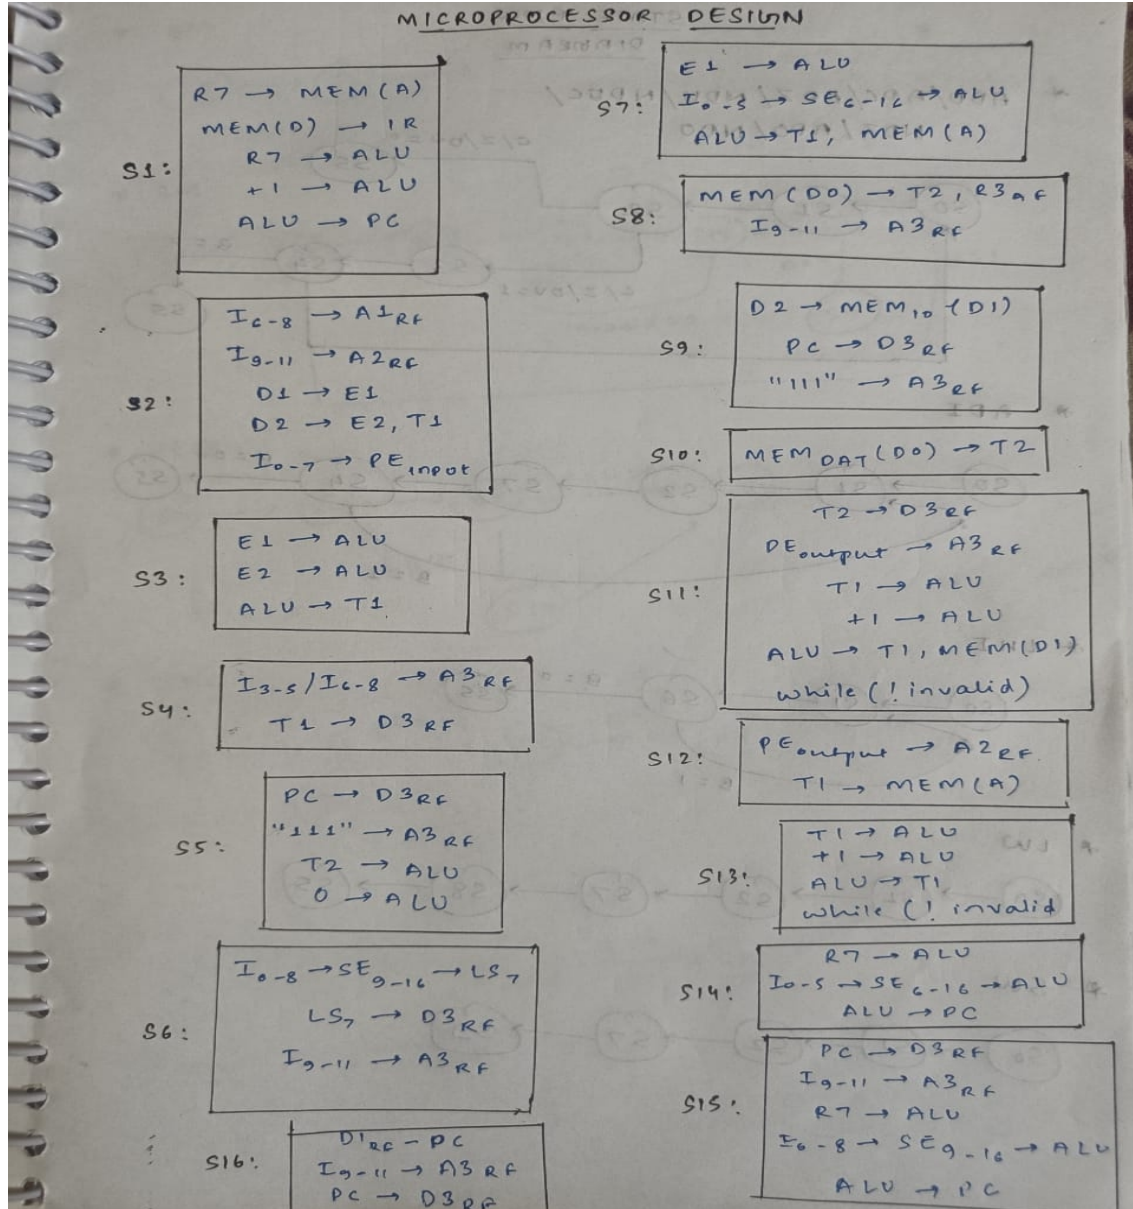 MICROPROCESSOR DESIGN
S1:
R7 → MEM(A)
MEM(D) → IR
R7 → ALU
+1 → ALU
ALU → PC
S2:
I6-8 → A1RF
I9-11 → A2RF
D1 → E1
D2 → E2, T1
I0-7 → PEinput
S3:
E1 → ALU
E2 → ALU
ALU → T1
S4:
I3-5/I6-8 → A3RF
T1 → D3RF
S5:
PC → D3RF
"111" → A3RF
T2 → ALU
0 → ALU
S6:
I0-8 → SE9-16 → LS7
LS7 → D3RF
I9-11 → A3RF
S16:
D1RF - PC
I9-11 → A3RF
PC → D3RF
S7:
E1 → ALU
I0-5 → SE6-16 → ALU
ALU → T1, MEM(A)
S8:
MEM(D0) → T2, R3RF
I9-11 → A3RF
S9:
D2 → MEM10(D1)
PC → D3RF
"111" → A3RF
S10:
MEMDAT(D0) → T2
S11:
T2 → D3RF
PEoutput → A3RF
T1 → ALU
+1 → ALU
ALU → T1, MEM(D1)
while(!invalid)
S12:
PEoutput → A2RF
T1 → MEM(A)
S13:
T1 → ALU
+1 → ALU
ALU → T1
while(!invalid
S14:
R7 → ALU
I0-5 → SE6-16 → ALU
ALU → PC
S15:
PC → D3RF
I9-11 → A3RF
R7 → ALU
I0-8 → SE9-16 → ALU
ALU → PC